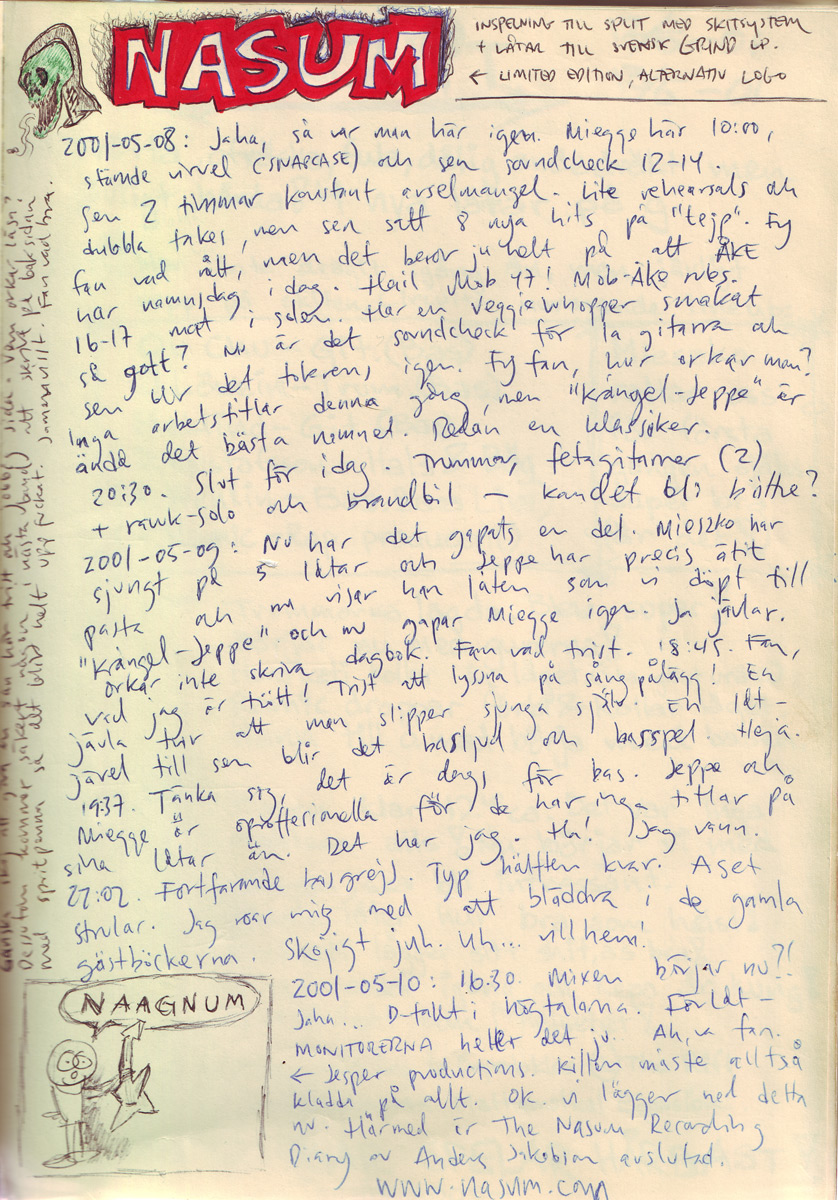 NASUM
INSPELNING TILL SPLIT MED SKITSYSTEM
+ LÅTAR TILL SVENSK GRIND LP.
← LIMITED EDITION, ALTERNATIV LOGO
2001-05-08: Jaha, så var man här igen. Miegge här 10:00,
stämde virvel (SNARECASE) och sen soundcheck 12-14.
Sen 2 timmar konstant avselmangel. Lite rehearsals och
dubbla takes, men sen satt 8 nya hits på "tejp". Fy
fan vad rått, men det beror ju helt på att ÅKE
har namnsdag idag. Hail Mob 47! Mob-Åke rules.
16-17 mat i solen. Har en veggiewhopper smakat
så gott? Nu är det soundcheck för la gitarra och
sen blir det tikrens igen. Fy fan, hur orkar man?
Inga arbetstitlar denna gång, men "Krångel-Jeppe" är
ändå det bästa namnet. Redan en klassiker.
20:30. Slut för idag. Trummor, fetagitarrer (2)
+ rawk-solo och brandbil – kan det bli bättre?
2001-05-09: Nu har det gapats en del. Mieszko har
sjungt på 5 låtar och Jeppe har precis ätit
pasta och nu visar han låten som vi döpt till
"Krångel-Jeppe" och nu gapar Miegge igen. Ja jävlar.
Orkar inte skriva dagbok. Fan vad trist. 18:45. Fan,
vad jag är trött! Trist att lyssna på sångpålägg! En
jävla tur att man slipper sjunga själv. En ldt-
jävel till sen blir det basljud och basspel. Heja.
19:37. Tänka sig, det är dags för bas. Jeppe och
Miegge är oproffersionella för de har inga titlar på
sina låtar än. Det har jag. Ha! Jag vann.
22:02. Fortfarande basgrejs. Typ hälften kvar. Aset
strular. Jag roar mig med att bläddra i de gamla
gästböckerna. Skojigt juh. Uh... vill hem!
2001-05-10: 16.30. Mixen börjar nu?!
Jaha... D-takt i högtalarna. Förldt –
MONITORERNA heter det ju. Ah, va fan.
← Jesper productions. Killen måste alltså
kladda på allt. OK. vi lägger ned detta
nu. Härmed är The Nasum Recording
Diary av Anders Jakobson avslutad.
www.nasum.com
NAAGNUM
Ganska skoj att göra en sån här trist och jobbig sida. Vem orkar läsa?
Dessutom kommer säkert någon (nästa band) att skriva på baksidan
med spritpenna så allt blir helt uppfuckat. Jammervilt. Fan vad bra.